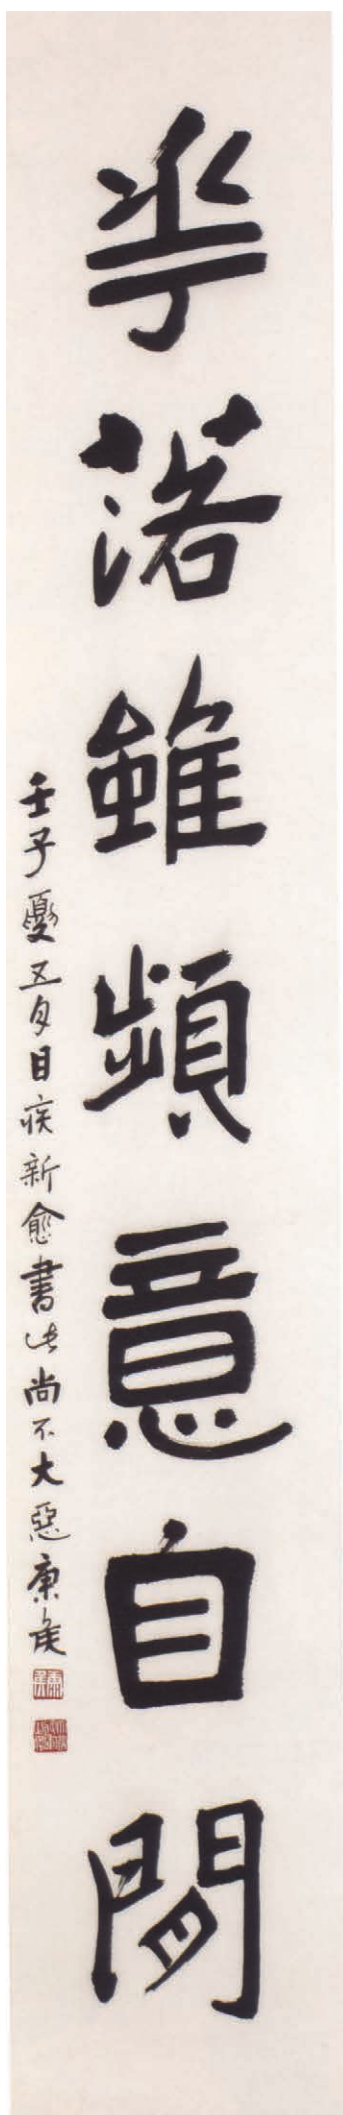 花落雖頻意自閒
壬子夏五月目疾新愈書此尚不大惡康侯